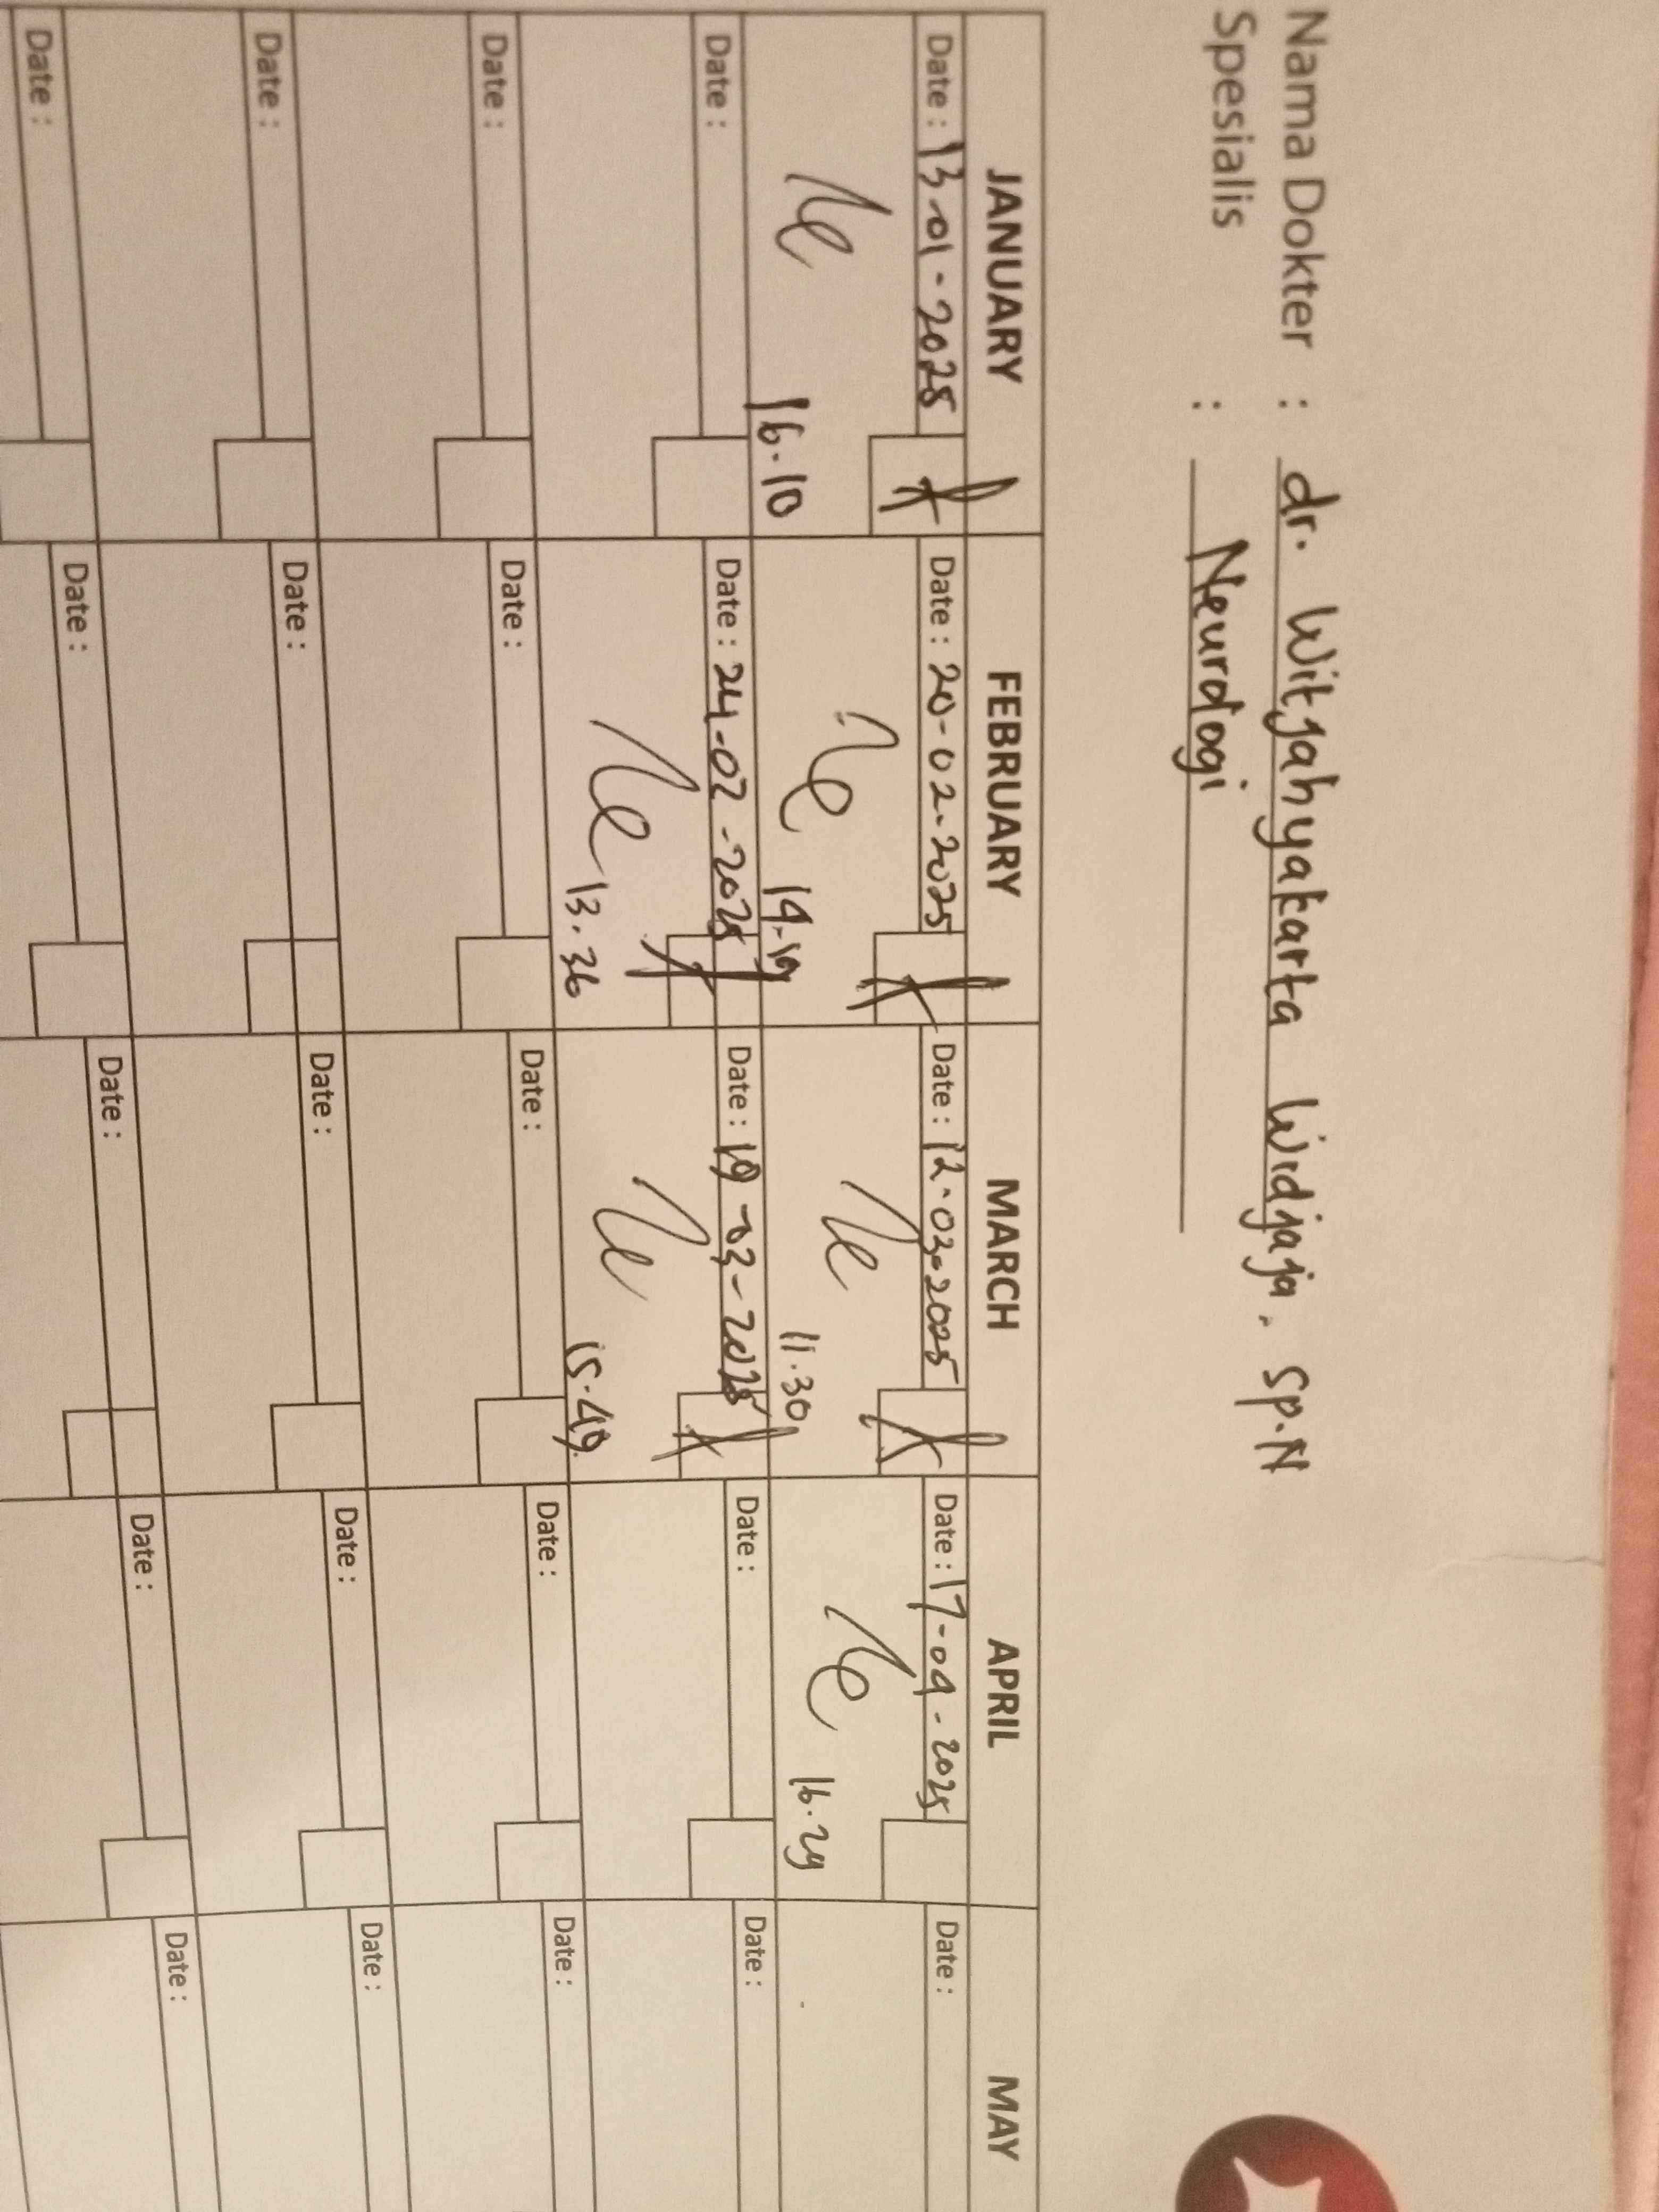 Nama Dokter : dr. Witjahyakarta Widjaja. Sp.N
Spesialis : Neurologi
JANUARY FEBRUARY MARCH APRIL MAY
Date : 13-01-2025 Date : 20-02-2025 Date : 12-03-2025 Date : 17-04-2025 Date :
16.10 14.19 11.30 16.29
Date : Date : 24-02-2025 Date : 19-03-2025 Date : Date :
13.36 15.49
Date : Date : Date : Date : Date :
Date : Date : Date : Date : Date :
Date : Date : Date : Date : Date :